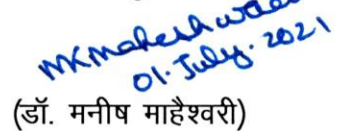 MKMaheshwari
01. July. 2021
(डॉ. मनीष माहैश्वरी)